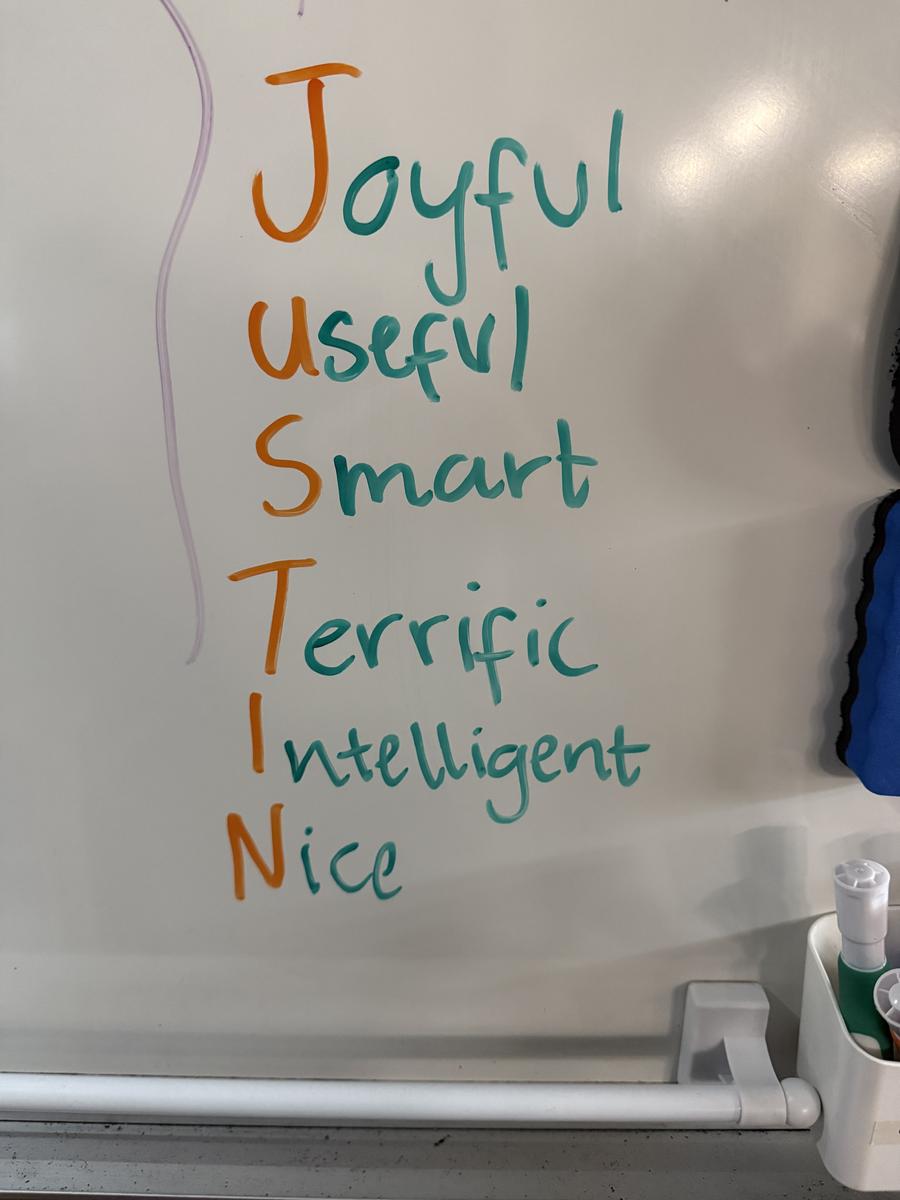 Joyful
useful
Smart
Terrific
Intelligent
Nice